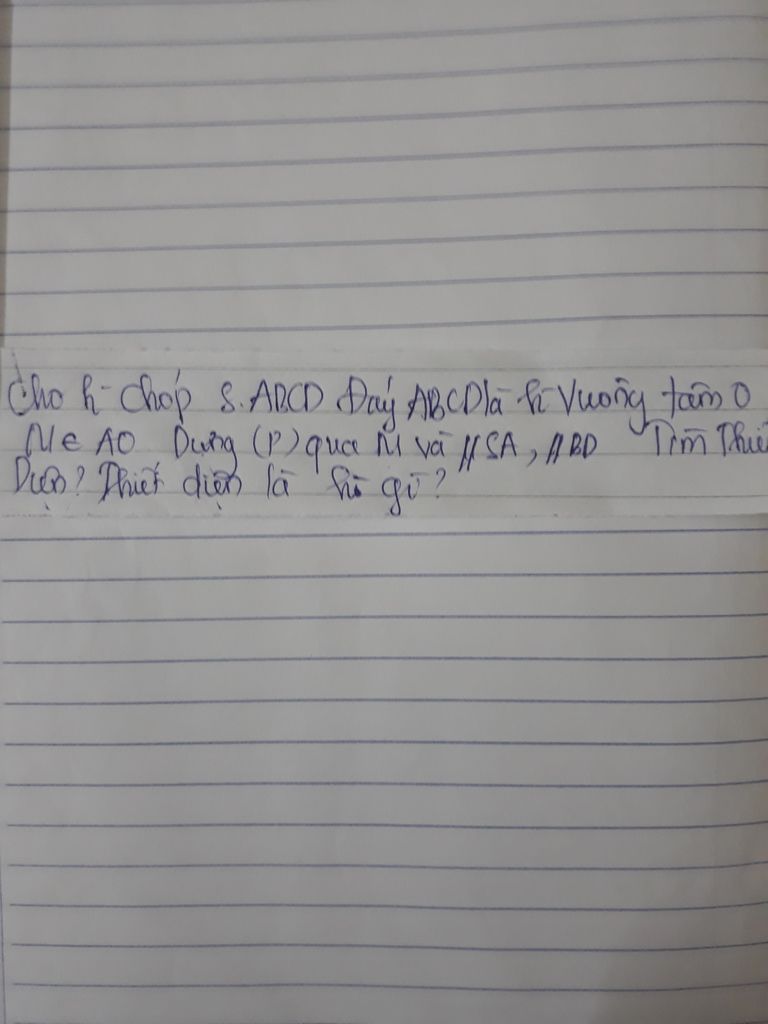 Cho h chóp S.ABCD Đáy ABCD là hì Vuông tâm O
M ∈ AO Dựng (P) qua M và // SA, // BD Tìm Thiế
Diện? Thiết diện là hì gì?